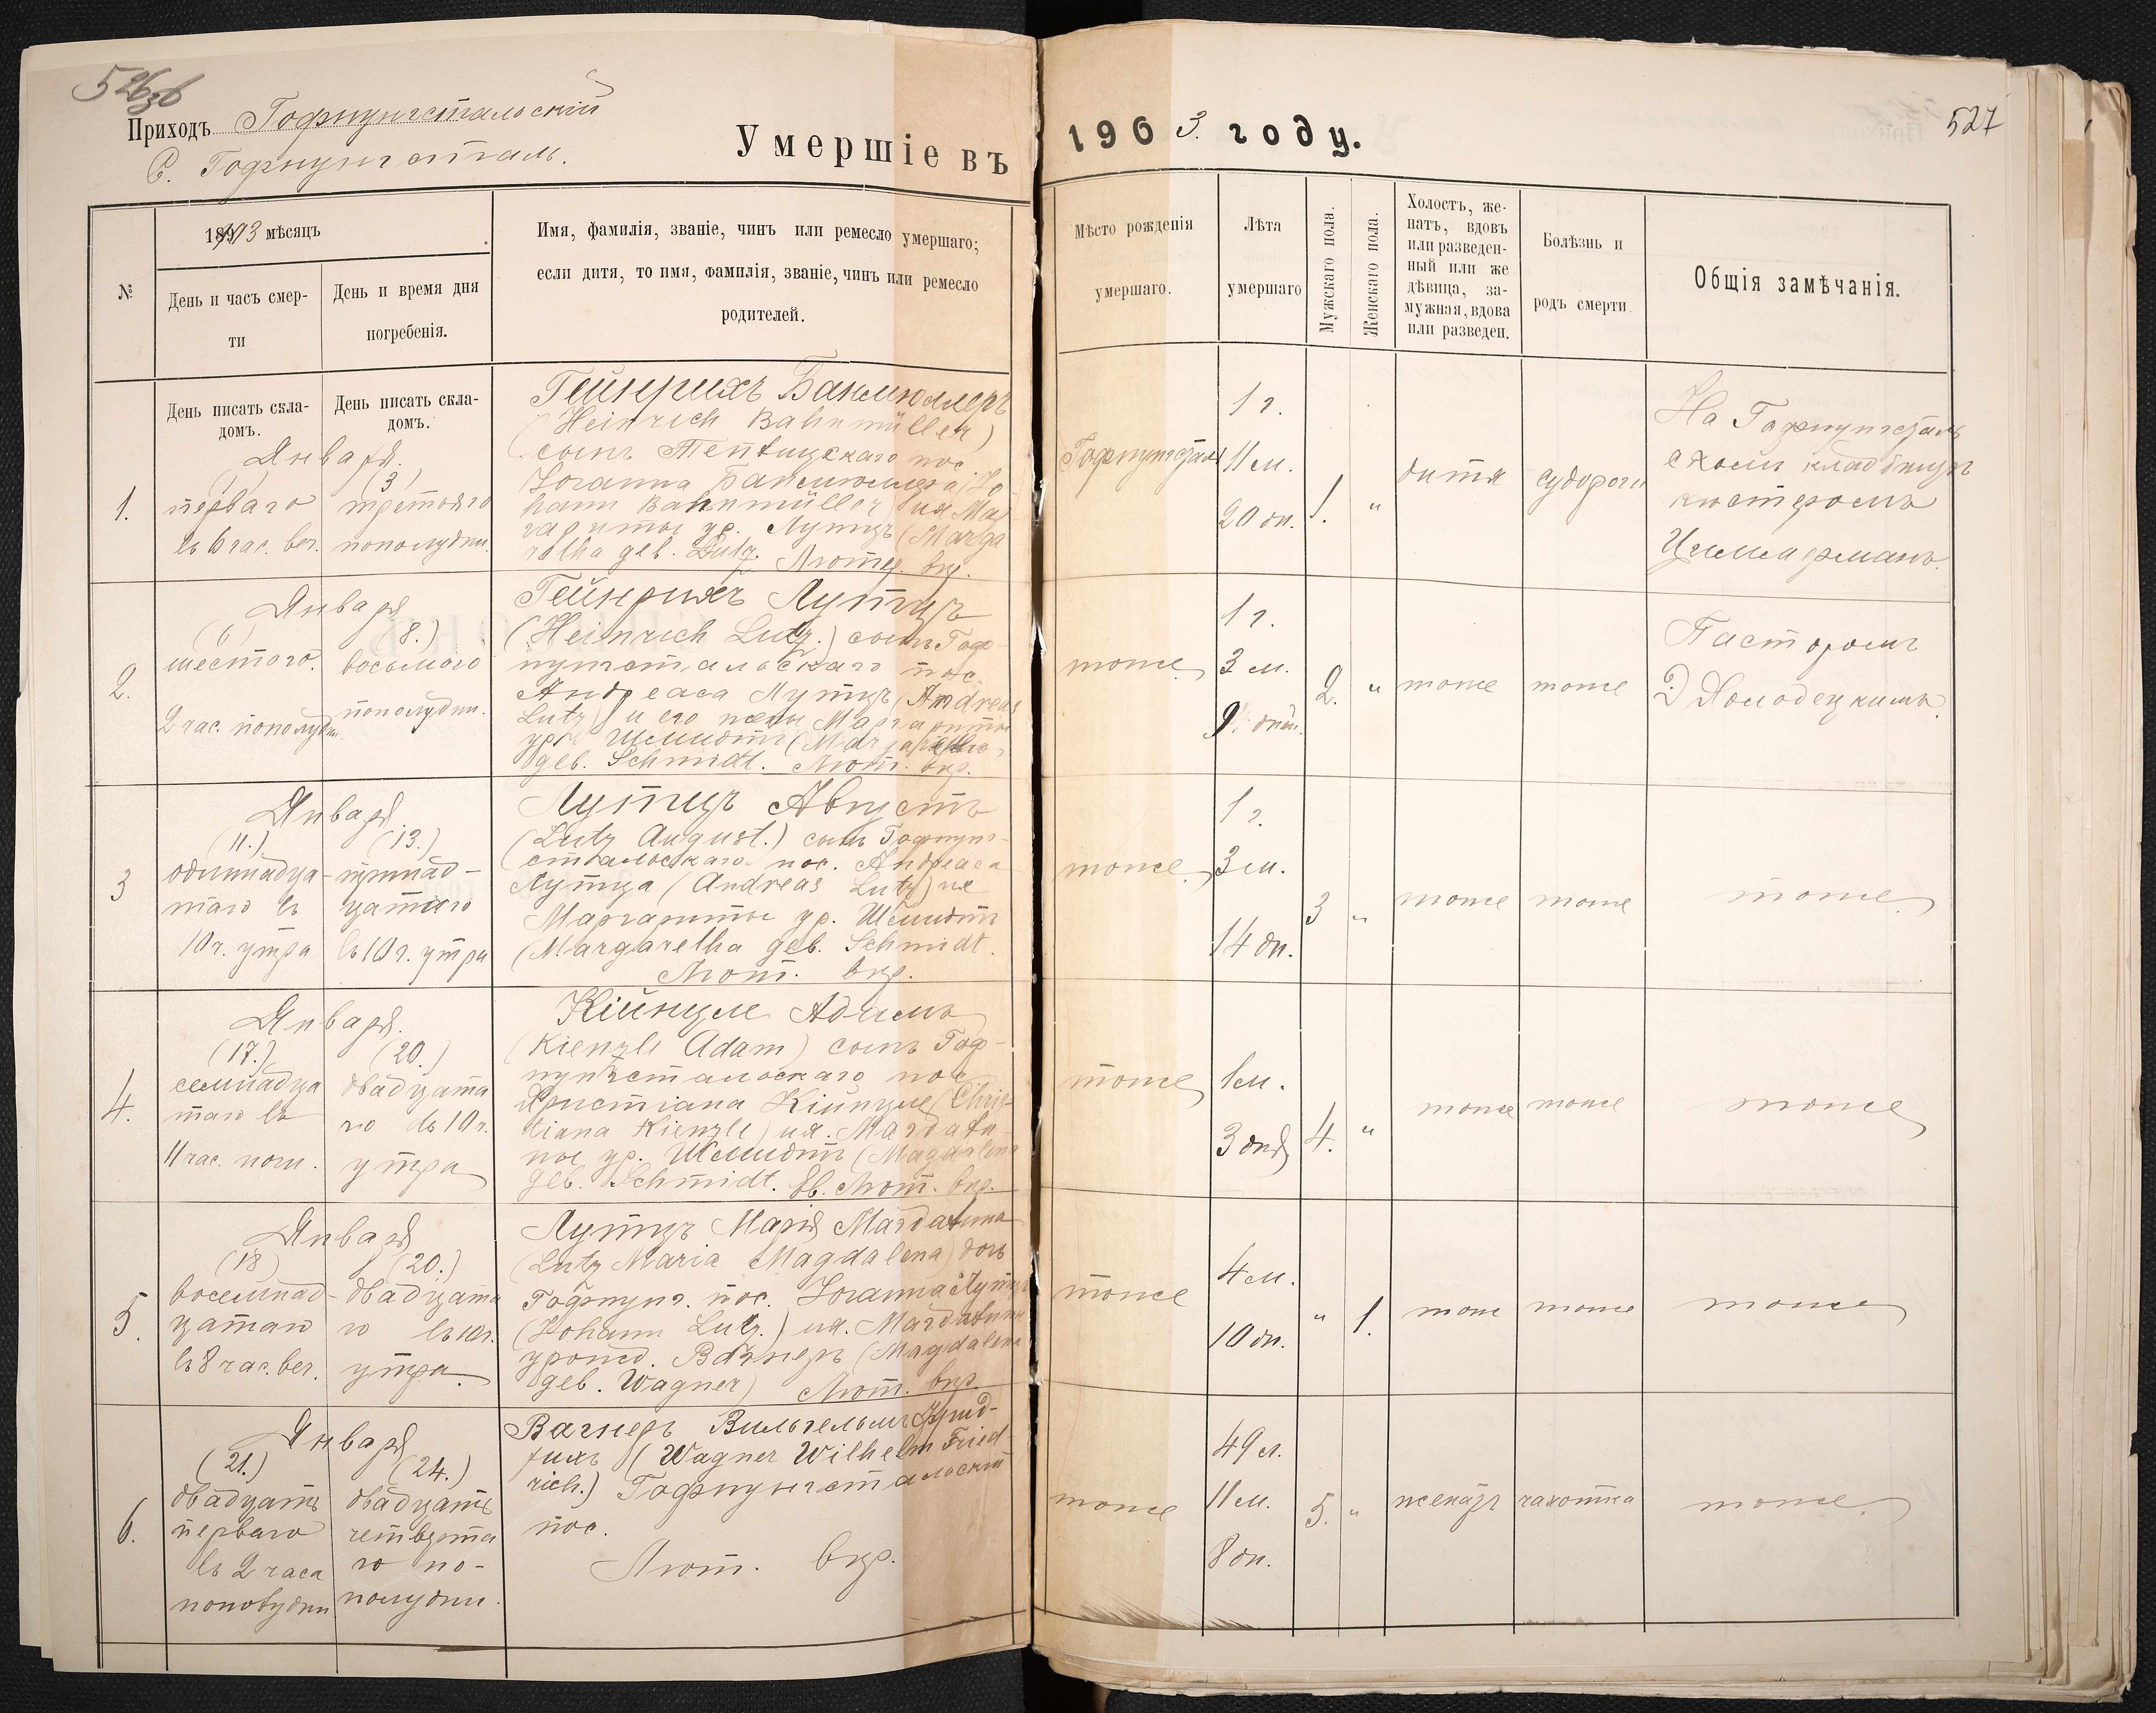 526
Приходъ Гофнунгстальскій
С. Гофнунгсталь.
Умершіе въ
1903. году.
527
№
1903 мѣсяцъ
День и часъ смер-
ти
День и время дня
погребенія.
Имя, фамилія, званіе, чинъ или ремесло умершаго;
если дитя, то имя, фамилія, званіе, чинъ или ремесло
родителей.
Мѣсто рожденія
умершаго.
Лѣта
умершаго
Мужскаго пола.
Женскаго пола.
Холостъ, же-
натъ, вдовъ
или разведен-
ный или же
дѣвица, за-
мужная, вдова
или разведен.
Болѣзнь и
родъ смерти.
Общія замѣчанія.
День писать скла-
домъ.
День писать скла-
домъ.
1.
Января.
(1)
перваго
въ 6 час. веч.
(3)
третьяго
пополудни.
Гейнрихъ Банмюллеръ
(Heinrich Bahnmüller)
сынъ Теплицскаго пос.
Іоганна Банмюллера (Jo
hann Bahnmüller) и Мар
гариты ур. Лутцъ (Marga
retha geb. Lutz. Лютер. вѣр.
Гофнунгсталь
1 г.
11 м.
20 дн.
1.
"
дитя
судороги
На Гофнунгсталь
скомъ кладбищѣ
кистеромъ
Циммерманъ.
2.
Января
(6)
шестого.
2 час. пополудн.
(8.)
восьмого
пополудни.
Гейнрихъ Лутцъ
(Heinrich Lutz.) сынъ Гоф-
нунгстальскаго пос.
Андреаса Лутцъ (Andreas
Lutz) и его жены Маргариты
ур. Шмидтъ (Margaretha
geb. Schmidt. Лют. вѣр.
тоже
1 г.
3 м.
9 дней.
2.
"
тоже
тоже
Пасторомъ
Э Холодецкимъ.
3
Января
(11.)
одиннадца-
таго въ
10 ч. утра
(13.)
тринад-
цатаго
въ 10 ч. утра
Лутцъ Августъ
(Lutz August.) сынъ Гофнунг-
стальскаго пос. Андреаса
Лутца (Andreas Lutz) и
Маргариты ур. Шмидтъ
(Margaretha geb. Schmidt.
Лют. вѣр.
тоже
1 г.
3 м.
14 дн.
3
"
тоже
тоже
тоже.
4.
Января.
(17.)
семнадца
таго въ
11 час. ночи.
(20.)
двадцата
го въ 10 ч.
утра
Кіинцле Адамъ
(Kienzle Adam) сынъ Гоф-
нунгстальскаго пос.
Христіана Кіинцле (Chris-
tiana Kienzle) и Магдали-
ны ур. Шмидтъ (Magdalena
geb. Schmidt. Ев. Лют. вѣр.
тоже
1 м.
3 дня
4.
"
тоже
тоже
тоже
5.
Января
(18)
восемнад-
цатаго
въ 8 час. веч.
(20.)
двадцата
го въ 10 ч.
утра.
Лутцъ Марія Магдалина
(Lutz Maria Magdalena) дочь
Гофнунг. пос. Іоганна Лутцъ
(Johann Lutz.) и Магдалины
урожд. Вагнеръ (Magdalena
geb. Wagner) Лют. вѣр.
тоже
4 м.
10 дн.
"
1.
тоже
тоже
тоже
6.
Января
(21.)
двадцать
перваго
въ 2 часа
пополудни
(24.)
двадцать
четверта
го по-
полудни.
Вагнеръ Вильгельмъ Фрид-
рихъ (Wagner Wilhelm Fried-
rich.) Гофнунгстальскій
пос.
Лют. вѣр.
тоже
49 л.
11 м.
8 дн.
5.
"
женатъ
чахотка
тоже.